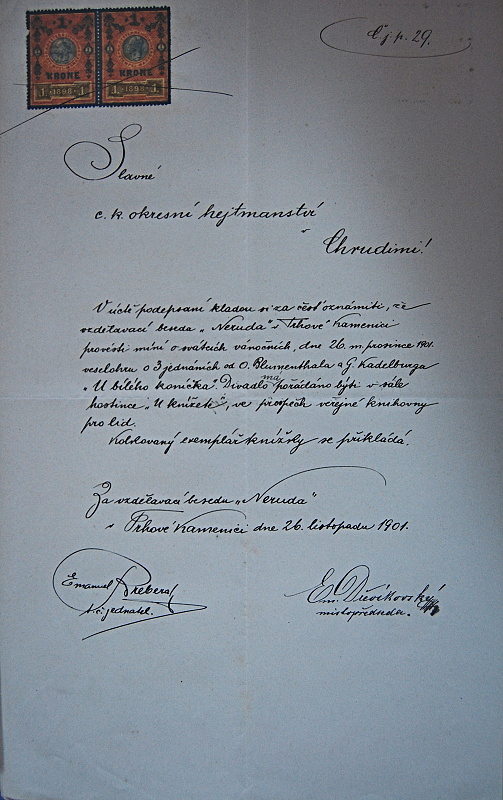 1 1
KRONE KRONE
1. 1898 1. 1. 1898 1.
Čj. p. 29.
Slavné
c. k. okresní hejtmanství
v
Chrudimi!
V úctě podepsaní kladou si za čest oznámiti, že
vzdělavací beseda „Neruda" v Trhové Kamenici
provésti míní o svátcích vánočních, dne 26. m. prosince 1901.
veselohru o 3 jednáních od O. Blumenthala a G. Kadelburga
„U bílého koníčka". Divadlo má pořádáno býti v sále
hostince „U knížete", ve prospěch veřejné knihovny
pro lid.
Kolkovaný exemplář knížky se přikládá.
Za vzdělavací besedu „Neruda"
v Trhové Kamenici dne 26. listopadu 1901.
Emanuel
jednatel.
Em.
místopředseda.